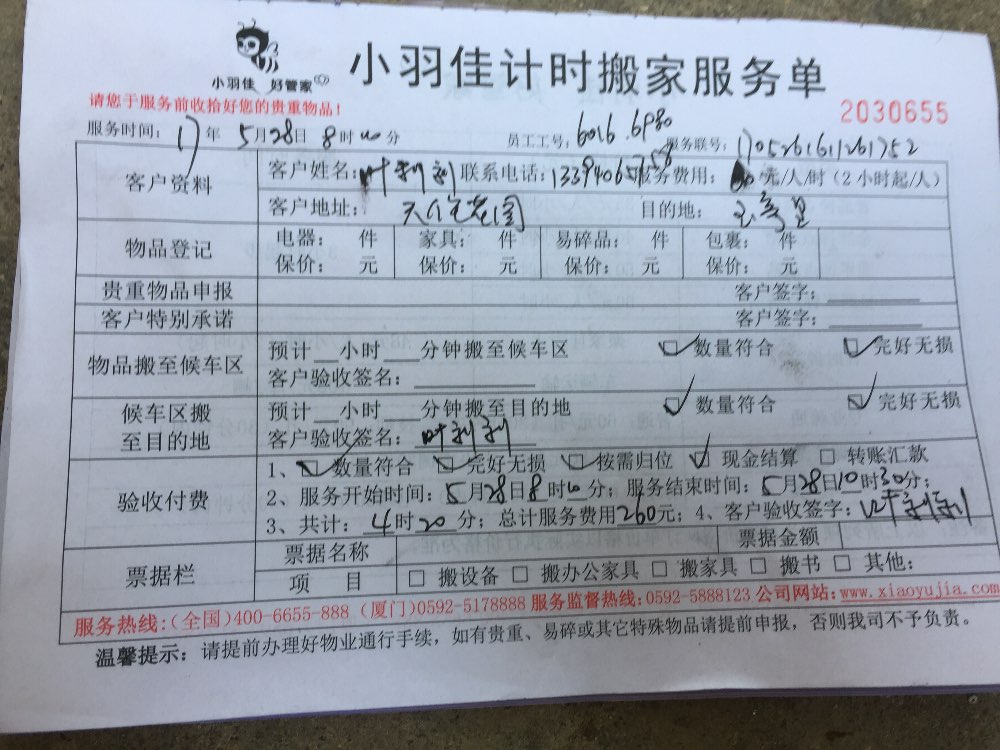 小羽佳 好管家
小羽佳计时搬家服务单
请您于服务前收拾好您的贵重物品！
2030655
服务时间：17年5月28日8时00分 员工工号：6016.6980 服务联号：17052616112617​52
客户资料 客户姓名：叶 联系电话： 服务费用： 元/人/时（2小时起/人）
客户地址：花园 目的地：
物品登记 电器： 件 家具： 件 易碎品： 件 包裹： 件
保价： 元 保价： 元 保价： 元 保价： 元
贵重物品申报 客户签字：
客户特别承诺 客户签字：
物品搬至候车区 预计__小时___分钟搬至候车区 数量符合 完好无损
客户验收签名：
候车区搬至目的地 预计__小时___分钟搬至目的地 数量符合 完好无损
客户验收签名：叶
验收付费 1、数量符合 完好无损 按需归位 现金结算 转账汇款
2、服务开始时间：5月28日8时00分；服务结束时间：5月28日10时30分；
3、共计：4时20分；总计服务费用260元；4、客户验收签字：叶
票据栏 票据名称 票据金额
项 目 搬设备 搬办公家具 搬家具 搬书 其他：
服务热线：（全国）400-6655-888（厦门）0592-5178888 服务监督热线：0592-5888123 公司网站：www.xiaoyujia.com
温馨提示：请提前办理好物业通行手续，如有贵重、易碎或其它特殊物品请提前申报，否则我司不予负责。